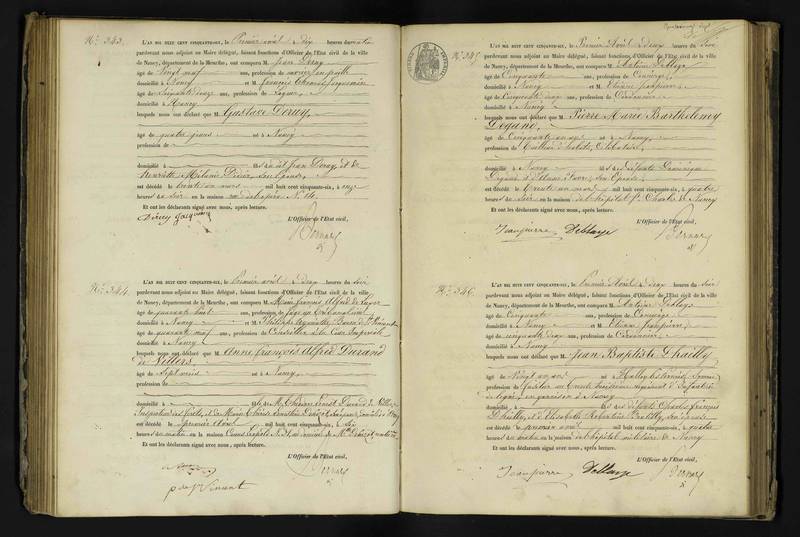 N° 343.
L'AN MIL HUIT CENT CINQUANTE-SIX, le Premier avril à dix heures du matin
pardevant nous adjoint au Maire délégué, faisant fonctions d'Officier de l'Etat civil de la ville
de Nancy, département de la Meurthe, ont comparu M. Jean Deruy
âgé de Vingt neuf ans, profession de ouvrier en paille
domicilié à Nancy et M. François
âgé de ans, profession de
domicilié à Nancy
lesquels nous ont déclaré que M. Gustave Deruy,
âgé de quatre jours né à Nancy
profession de
domicilié à fils de Jean Deruy, et de
Henriette Mélanie Didier, son épouse,
est décédé le trente un mars mil huit cent cinquante-six, à onze
heures du soir en la maison N° 114.
Et ont les déclarants signé avec nous, après lecture.
L'Officier de l'Etat civil,
Deruy
Bernard
N° 344.
L'AN MIL HUIT CENT CINQUANTE-SIX, le Premier avril à deux heures du soir
pardevant nous adjoint au Maire délégué, faisant fonctions d'Officier de l'Etat civil de la ville
de Nancy, département de la Meurthe, ont comparu M. Marie François Alfred de
âgé de quarante huit ans, profession de
domicilié à Nancy et M. Philippe Baron de St Vincent
âgé de quarante neuf ans, profession de Conseiller à la Cour Impériale
domicilié à Nancy
lesquels nous ont déclaré que M. Anne François Alfred Durand
de Villers
âgé de Sept mois né à Nancy,
profession de
domicilié à fils de M. Durand de Villers
Inspecteur des forêts, et de Marie
est décédé le premier avril mil huit cent cinquante-six, à six
heures du matin en la maison Cours Léopold N.
Et ont les déclarants signé avec nous, après lecture.
L'Officier de l'Etat civil,
Bernard
p. de St Vincent
N° 345.
L'AN MIL HUIT CENT CINQUANTE-SIX, le Premier Avril à deux heures du soir
pardevant nous adjoint au Maire délégué, faisant fonctions d'Officier de l'Etat civil de la ville
de Nancy, département de la Meurthe, ont comparu M. Antoine Deblaye
âgé de Cinquante ans, profession de Concierge,
domicilié à Nancy et M. Etienne Jeanpierre,
âgé de Cinquante deux ans, profession de Cordonnier,
domicilié à Nancy
lesquels nous ont déclaré que M. Pierre Marie Barthélemy
Degano,
âgé de Cinquante un ans né à Nancy,
profession de Tailleur d'habits, Célibataire,
domicilié à Nancy fils de défunts Dominique
Degano, et son épouse
est décédé le trente un mars mil huit cent cinquante-six, à quatre
heures du soir en la maison de l'hôpital St Charles à Nancy
Et ont les déclarants signé avec nous, après lecture.
L'Officier de l'Etat civil,
Jeanpierre Deblaye
Bernard
N° 346.
L'AN MIL HUIT CENT CINQUANTE-SIX, le Premier Avril à deux heures du soir
pardevant nous adjoint au Maire délégué, faisant fonctions d'Officier de l'Etat civil de la ville
de Nancy, département de la Meurthe, ont comparu M. Antoine Deblaye
âgé de Cinquante ans, profession de Concierge
domicilié à Nancy et M. Etienne Jeanpierre
âgé de cinquante deux ans, profession de Cordonnier,
domicilié à Nancy
lesquels nous ont déclaré que M. Jean Baptiste Dhailly
âgé de Vingt un ans né à
profession de fusilier au régiment d'Infanterie
de ligne, en garnison à Nancy,
domicilié à fils de défunts Charles François
Dhailly, et d'Elisabeth son épouse
est décédé le premier avril mil huit cent cinquante-six, à quatre
heures du matin en la maison de l'hôpital militaire de Nancy
Et ont les déclarants signé avec nous, après lecture.
L'Officier de l'Etat civil,
Jeanpierre Deblaye
Bernard